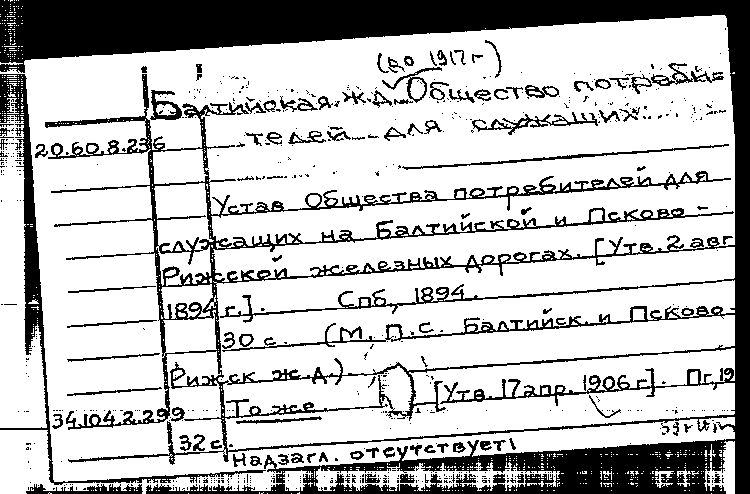 (до 1917 г)
Балтийская ж.д. Общество потреби-
20.60.8.236 телей для служащих.
Устав Общества потребителей для
служащих на Балтийской и Псково-
Рижской железных дорогах. [Утв. 2 авг
1894 г.]. Спб., 1894.
30 с. (М.П.С. Балтийск. и Псково-
Рижск ж.д.)
34.104.2.299 То же. [Утв. 17 апр. 1906 г]. Пг, 19
32 с.
Надзагл. отсутствует!